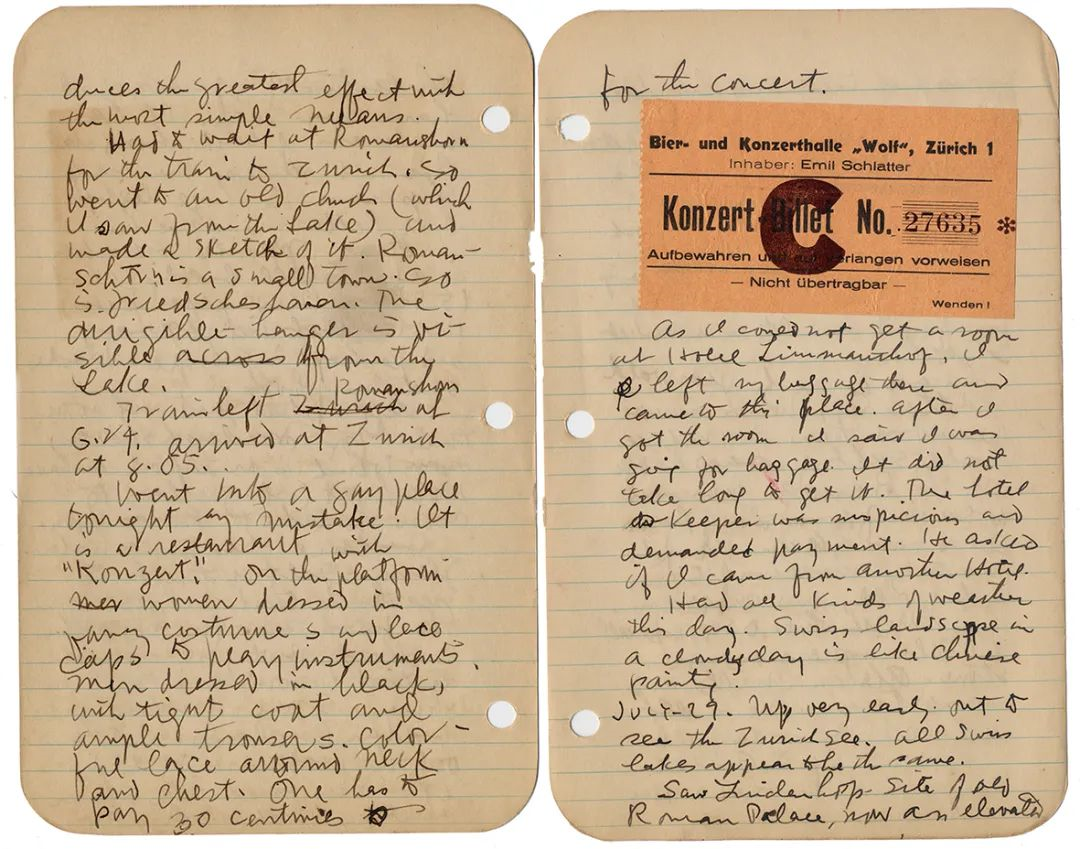 duces the greatest effect with
the most simple means.
Had to wait at Romanshorn
for the train to Zurich. So
went to an old church (which
I saw from the Lake) and
made a sketch of it. Roman-
schorn is a small town. So
is Friedscheshaven. The
dirigible hanger is vi-
sible across from the
Lake.
Romanshorn
Train left Zurich at
6.24. arrived at Zurich
at 8.05..
Went into a gay place
tonight by mistake. It
is a restaurant with
"Konzert." On the platform
women dressed in
fancy costumes and lace
caps to play instruments.
men dressed in black,
with tight coat and
ample trousers. Color-
ful lace around neck
and chest. One has to
pay 30 centimes
for the concert.
Bier- und Konzerthalle „Wolf", Zürich 1
Inhaber: Emil Schlatter
Konzert-Billet No. 27635 *
C
Aufbewahren und auf Verlangen vorweisen
— Nicht übertragbar —
Wenden!
As I could not get a room
at Hotel Limmathof, I
left my luggage there and
came to this place. After I
got the room I said I was
going for baggage. It did not
take long to get it. The hotel
Keeper was suspicious and
demanded payment. He asked
if I came from another Hotel.
Had all kinds of weather
this day. Swiss landscape in
a cloudy day is like chinese
painting.
JULY-29. Up very early. out to
see the Zurichsee. All Swiss
lakes appear to be the same.
Saw Lindenhof- Site of old
Roman Palace, now an elevated